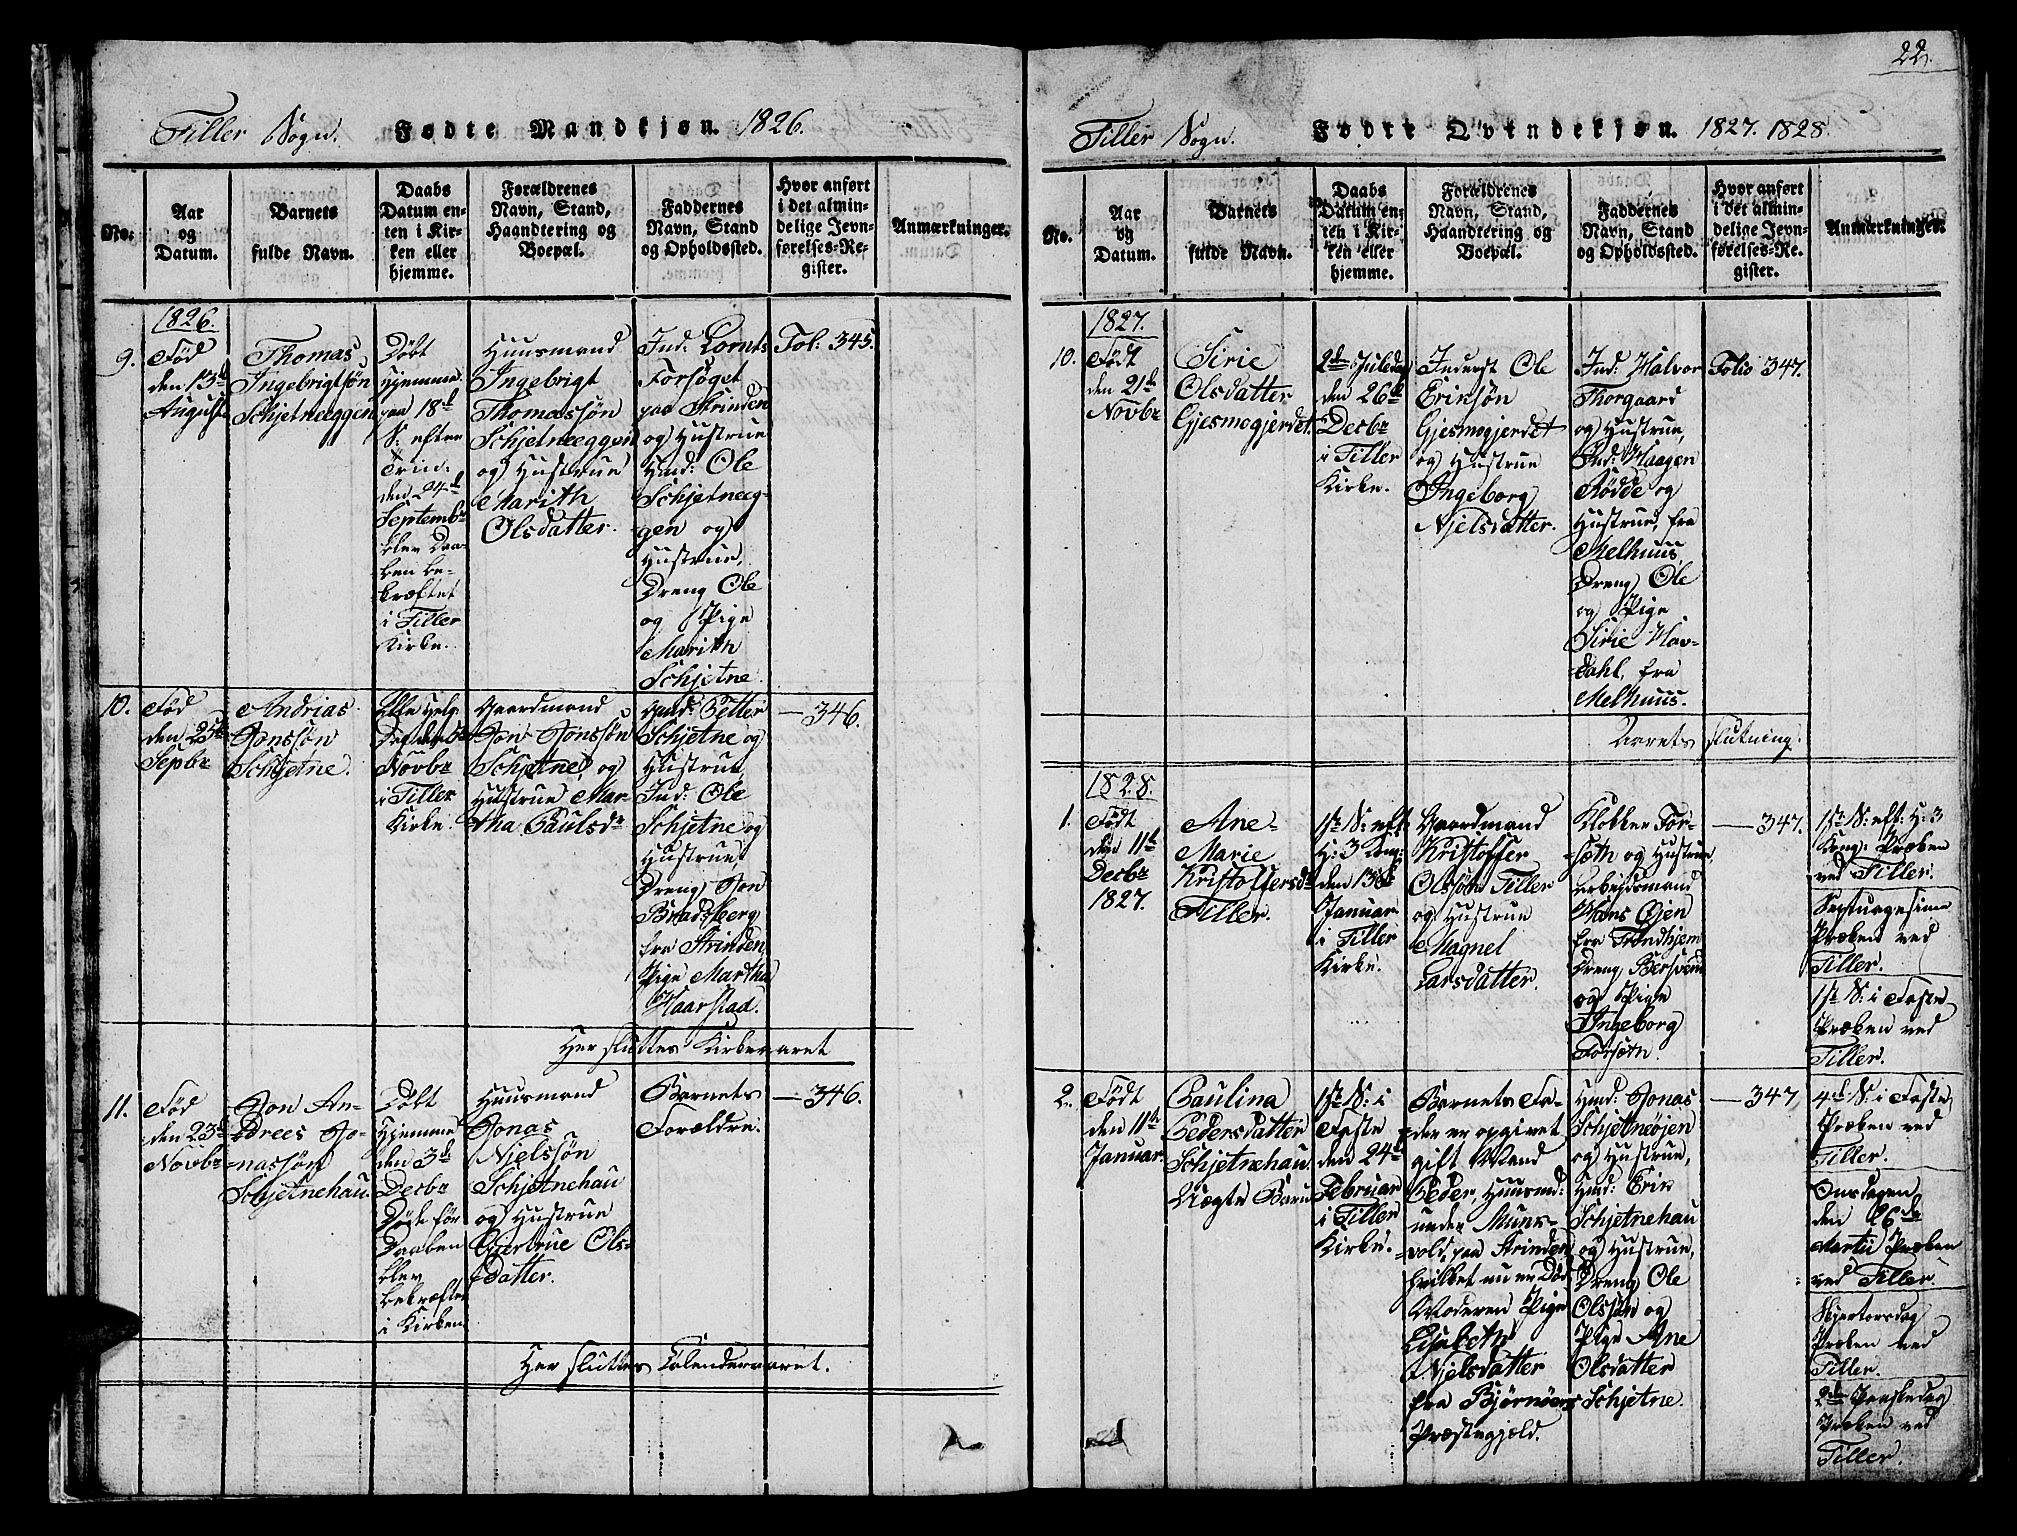 22.
Tiller Sogn. Fødte Mandkjøn. 1826.
No.
Aar
og
Datum.
Barnets
fulde Navn.
Daabs
Datum en-
ten i Kir-
ken eller
hjemme.
Forældrenes
Navn, Stand,
Haandtering og
Boepæl.
Faddernes
Navn, Stand
og Opholdssted.
Hvor anført
i det almin-
delige Jevn-
førelses-Re-
gister.
Anmærkninger.
1826.
9.
Fød
den 13d
August
Thomas
Ingebrigtsøn
Schjetneeggen
Døbt
hjemme.
paa 18d
S: efter
Trin:
den 24d
Septembr
blev Daa-
ben be-
kræftet
i Tiller
Kirke.
Huusmand
Ingebrigt
Thomassøn
Schjetneeggen
og Hustrue
Marith
Olsdatter.
Ind: Lornts
Forsøget
paa Strinden
og Hustrue
Hmd: Ole
Schjetneeg-
gen og
Hustrue,
Dreng Ole
og Pige
Marith
Schjetne.
Fol: 345.
10.
Fød
den 25d
Sepbr
Andrias
Jonssøn
Schjetne.
Alle Helg:
Dag den
Novbr
i Tiller
Kirke.
Gaardmand
Jon Jonssøn
Schjetne, og
Hustrue Mar-
tha Paulsdr
Gmd: Petter
Schjetne og
Hustrue,
Ind: Ole
Schjetne og
Hustrue,
Dreng Jon
Bradsberg
fra Strinden
Pige Martha
Haarstad.
— 346.
Her sluttes Kirkeaaret
11.
Fød
den 23d
Novbr
Jon An-
drees Jo-
nassøn
Schjetnehau.
Døbt
hjemme
den 3d
Decbr
Døde før
Daaben
blev
bekræftet
i Kirken.
Huusmand
Jonas
Nielssøn
Schjetnehau
og Hustrue
Giertrue Ols-
datter.
Barnets
Forældre.
— 346.
Her sluttes Calenderaaret.
Tiller Sogn. Fødte Qvindekjøn. 1827. 1828.
No.
Aar
og
Datum.
Barnets
fulde Navn.
Daabs
Datum en-
ten i Kir-
ken eller
hjemme.
Forældrenes
Navn, Stand,
Haandtering og
Boepæl.
Faddernes
Navn, Stand
og Opholdssted.
Hvor anført
i det almin-
delige Jevn-
førelses-Re-
gister.
Anmærkninger.
1827.
10.
Født
den 21d
Novbr
Sirie
Olsdatter
Gjesmogjerdet.
2den Juledag
den 26d
Decbr
i Tiller
Kirke.
Inderst Ole
Eriksøn
Gjesmogjerdet
og Hustrue
Ingeborg
Njelsdatter.
Ind: Halvor
Thorgaard
og Hustrue,
Ind: Haagen
Rødde og
Hustrue, fra
Melhuus,
Dreng Ole
og Pige
Sirie Hav-
dahl, fra
Melhuus.
Folio 347.
Aarets slutning.
1828.
1.
Født
den 11d
Decbr
1827.
Ane
Marie
Kristoffersdr
Tiller.
1ste S: eft:
H: 3 Kong:
den 13de
Januar
i Tiller
Kirke.
Gaardmand
Kristoffer
Olssøn Tiller
og Hustrue
Magnel
Larsdatter.
Klokker For-
sæth og Hustrue,
Arbeidsmand
Hans Øjen
fra Trondhjem
Dreng Bersvend
og Pige
Ingeborg
Forsæth.
— 347.
1ste S: eft: H: 3
Kong: Præken
ved Tiller.
Septuagesima
Præken ved
Tiller.
1ste S: i Faste
Præken ved
Tiller.
2.
Født
den 11te
Januar
Paulina
Pedersdatter
Schjetnehau.
Uægte Barn
1ste S: i
Faste
den 24d
Februar
i Tiller
Kirke.
Barnets Fa-
der er opgivet
gift Mand
Peder, Huusmd:
under Muns-
vold, paa Strinden
hvilket nu er Død
Moderen Pige
Elisabeth
Njelsdatter
fra Bjørnøers
Præstegjæld.
Hmd: Jonas
Schjetneøjen
og Hustrue,
Hmd: Erik
Schjetnehau
og Hustrue,
Dreng Ole
Olssøn og
Pige Ane
Olsdatter
Schjetne.
— 347
4de S: i Faste,
Præken ved
Tiller.
Onsdagen
den 26de
Martii Præken
ved Tiller.
Skjertorsdag
Præken ved
Tiller.
2den Paaskedag
Præken ved
Tiller.